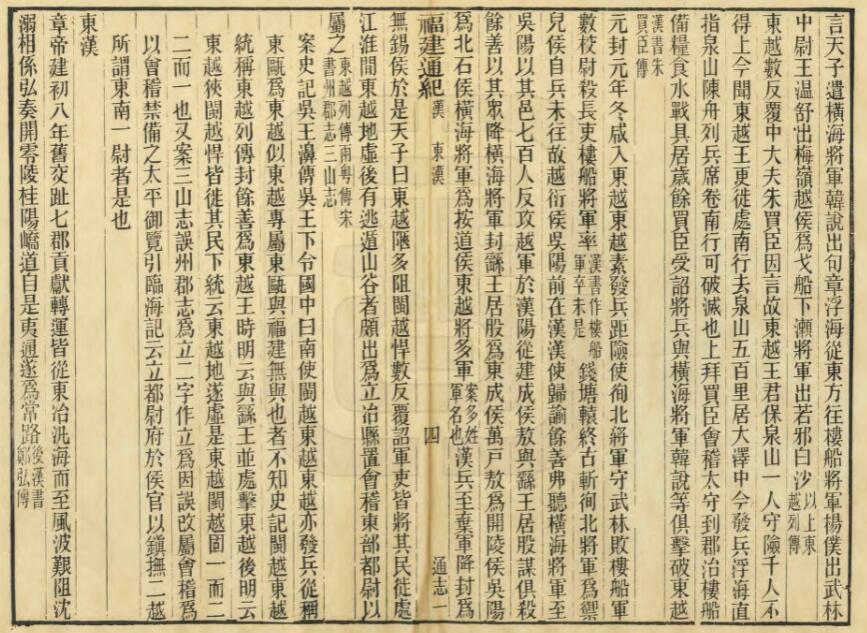 言天子遣橫海將軍韓說出句章浮海從東方往樓船將軍楊僕出武林
中尉王温舒出梅嶺越侯爲戈船下瀨將軍出若邪白沙以上東越列傳
東越數反覆中大夫朱買臣因言故東越王君保泉山一人守險千人不
得上今聞東越王更徙處南行去泉山五百里居大澤中今發兵浮海直
指泉山陳舟列兵席卷南行可破滅也上拜買臣會稽太守到郡治樓船
備糧食水戰具居歲餘買臣受詔將兵與橫海將軍韓說等俱擊破東越
漢書朱買臣傳
元封元年冬咸入東越東越素發兵距險使徇北將軍守武林敗樓船軍
數校尉殺長吏樓船將軍率漢書作樓船軍卒未是錢塘轅終古斬徇北將軍爲禦
兒侯自兵未往故越衍侯吳陽前在漢漢使歸諭餘善弗聽橫海將軍至
吳陽以其邑七百人反攻越軍於漢陽從建成侯敖與繇王居股謀俱殺
餘善以其眾降橫海將軍封繇王居股爲東成侯萬戶敖爲開陵侯吳陽
爲北石侯橫海將軍爲按道侯東越將多軍案多姓軍名也漢兵至棄軍降封爲
福建通紀 漢 東漢 四 通志一
無錫侯於是天子曰東越陿多阻閩越悍數反覆詔軍吏皆將其民徙處
江淮間東越地虛後有逃遁山谷者頗出爲立冶縣置會稽東部都尉以
屬之東越列傳兩粤傳宋書州郡志三山志
案史記吳王濞傳吳王下令國中曰南使閩越東越東越亦發兵從稱
東甌爲東越似東越專屬東甌與福建無與也者不知史記閩越東越
統稱東越列傳封餘善爲東越王時明云與繇王並處擊東越後明云
東越狹閩越悍皆徙其民下統云東越地遂虛是東越閩越固一而二
二而一也又案三山志誤州郡志爲立二字作立爲因誤改屬會稽爲
以會稽禁備之太平御覽引臨海記云立都尉府於侯官以鎮撫二越
所謂東南一尉者是也
東漢
章帝建初八年舊交趾七郡貢獻轉運皆從東冶汎海而至風波艱阻沈
溺相係弘奏開零陵桂陽嶠道自是夷通遂爲常路後漢書鄭弘傳